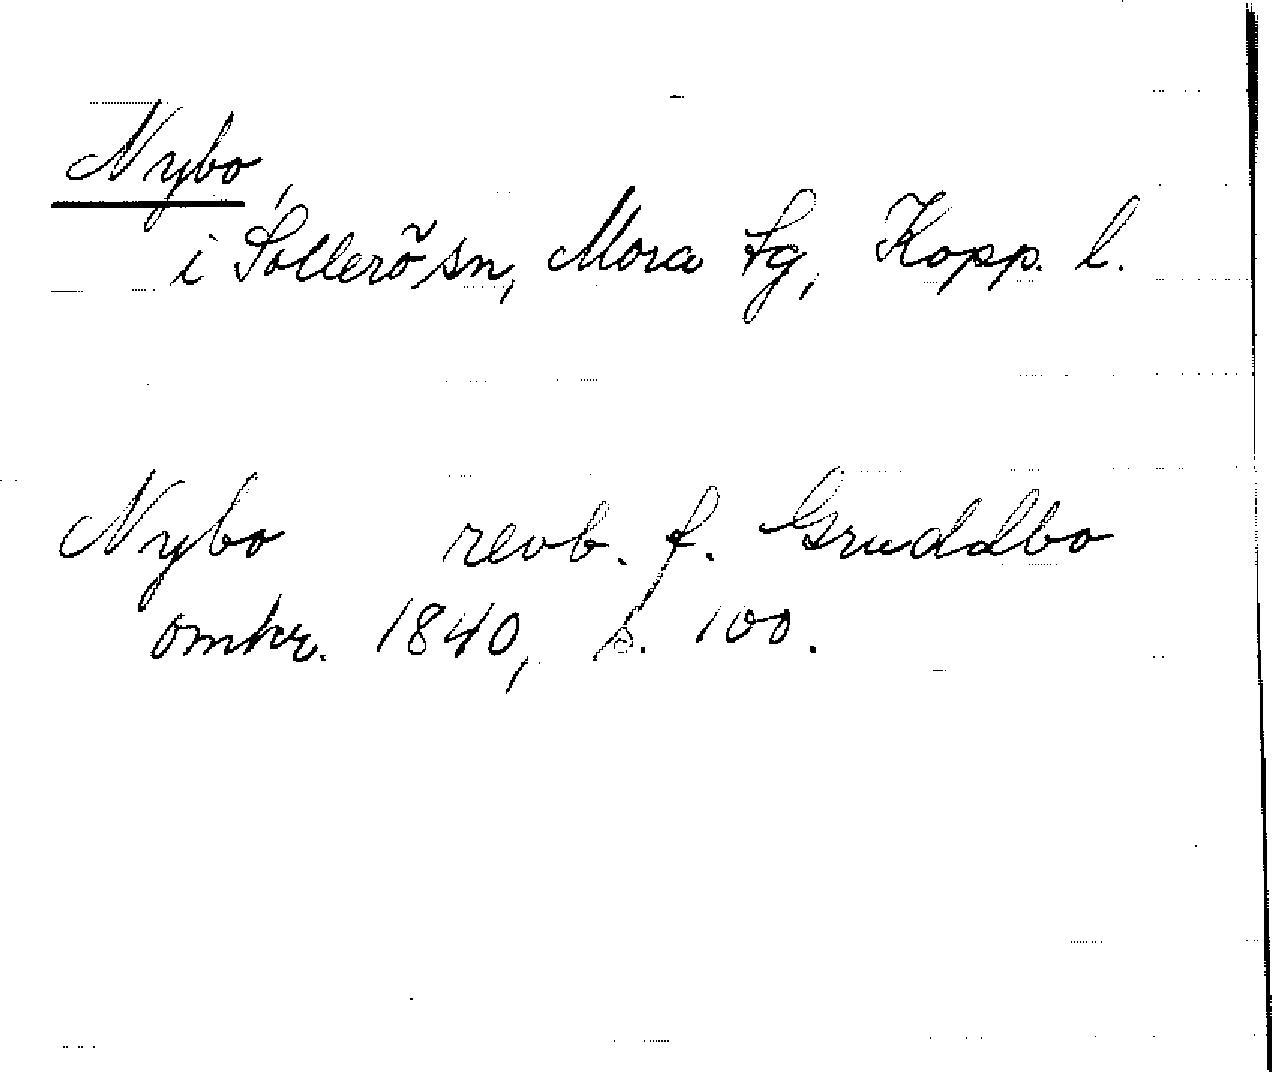 Nybo,
i Sollerö sn, Mora tg, Kopp. l.
Nybo revb. f. Gruddbo
omkr. 1840, s. 100.